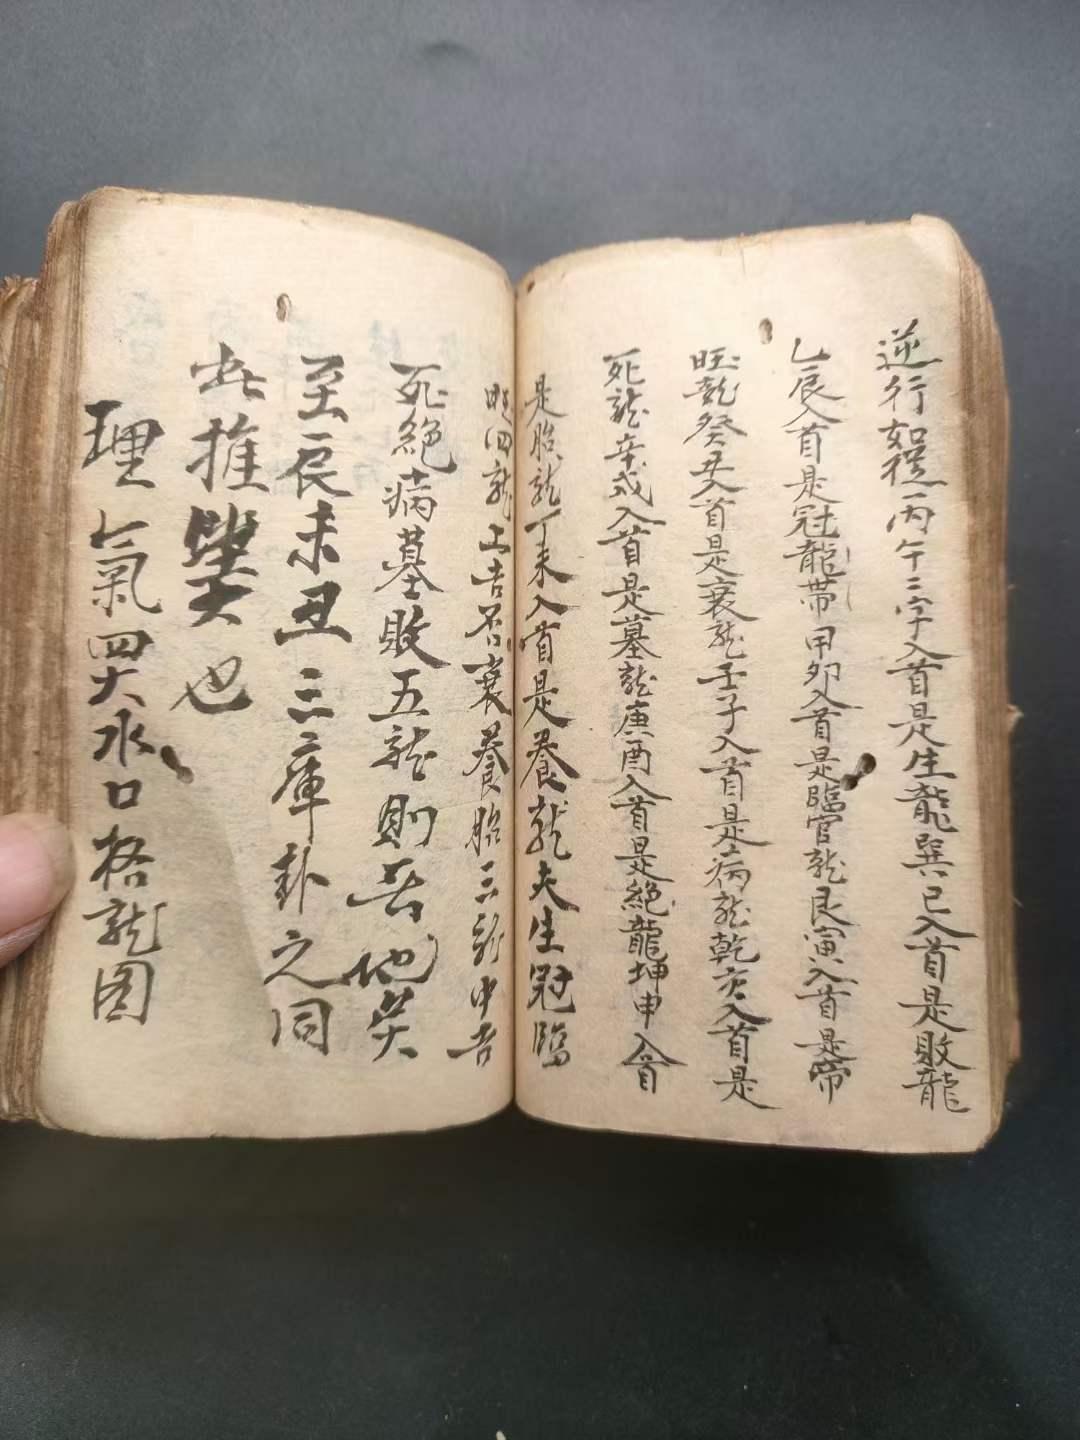 逆行如從丙午二字入首是生龍巽巳入首是敗龍
乙辰入首是冠龍帶甲卯入首是臨官龍艮寅入首是帝
旺龍癸丑入首是衰龍壬子入首是病龍乾亥入首是
死龍辛戌入首是墓龍庚酉入首是絕龍坤申入首
是胎龍丁未入首是養龍夫生冠臨
旺四龍上吉否衰養胎三龍中吉
死絕病墓敗五龍則吉他矣
至辰未丑三庫卦之同
此推矣也
理氣四大水口格龍图